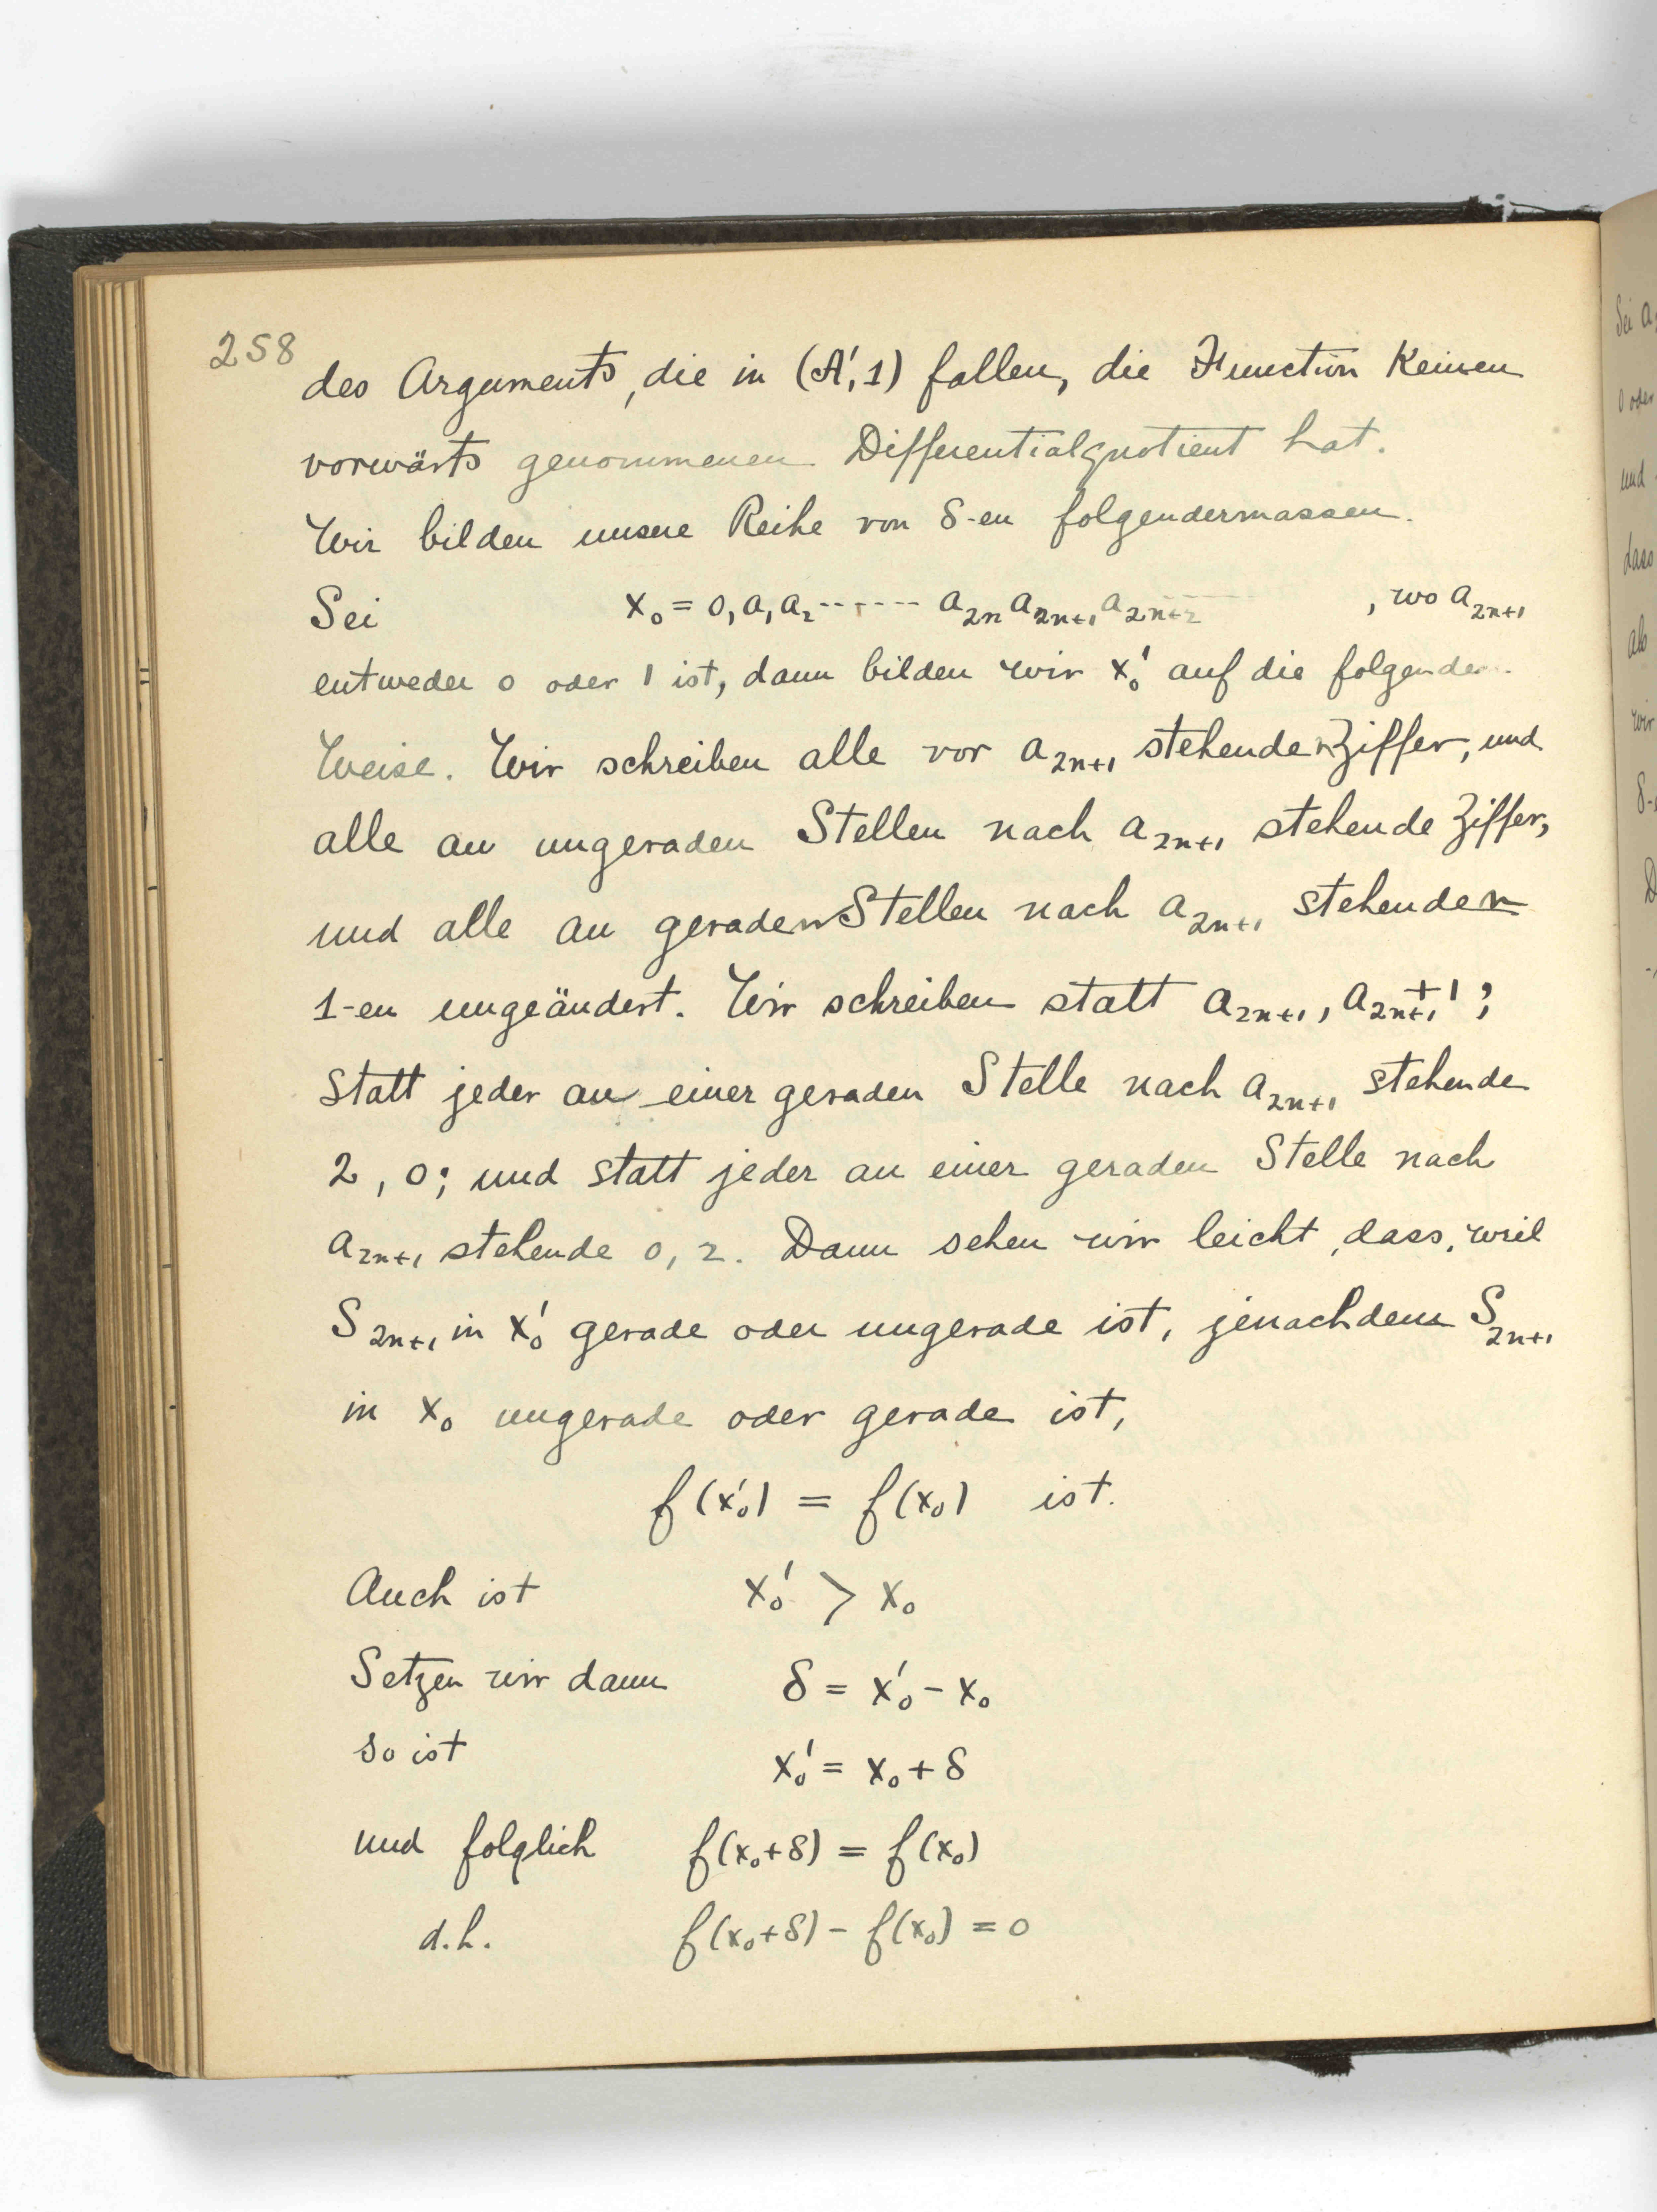 258
des Arguments, die in (A', 1) fallen, die Function keinen
vorwärts genommenen Differentialquotient hat.
Wir bilden unsere Reihe von δ-en folgendermassen.
Sei x₀ = 0, a₁ a₂ ------- a₂ₙ a₂ₙ₊₁ a₂ₙ₊₂ ------ , wo a₂ₙ₊₁
entweder 0 oder 1 ist, dann bilden wir x₀' auf die folgenden
Weise. Wir schreiben alle vor a₂ₙ₊₁ stehenden Ziffer, und
alle an ungeraden Stellen nach a₂ₙ₊₁ stehende Ziffer,
und alle an geraden Stellen nach a₂ₙ₊₁ stehenden
1-en ungeändert. Wir schreiben statt a₂ₙ₊₁, a₂ₙ₊₁ + 1 ;
statt jeder an einer geraden Stelle nach a₂ₙ₊₁ stehende
2, 0; und statt jeder an einer geraden Stelle nach
a₂ₙ₊₁ stehende 0, 2. Dann sehen wir leicht, dass, weil
S₂ₙ₊₁ in x₀' gerade oder ungerade ist, jenachdem S₂ₙ₊₁
in x₀ ungerade oder gerade ist,
f(x₀') = f(x₀) ist.
Auch ist x₀' > x₀
Setzen wir dann δ = x₀' - x₀
so ist x₀' = x₀ + δ
und folglich f(x₀+δ) = f(x₀)
d.h. f(x₀+δ) - f(x₀) = 0
Sei a
0 oder
und
dass
als
wir
δ-
D